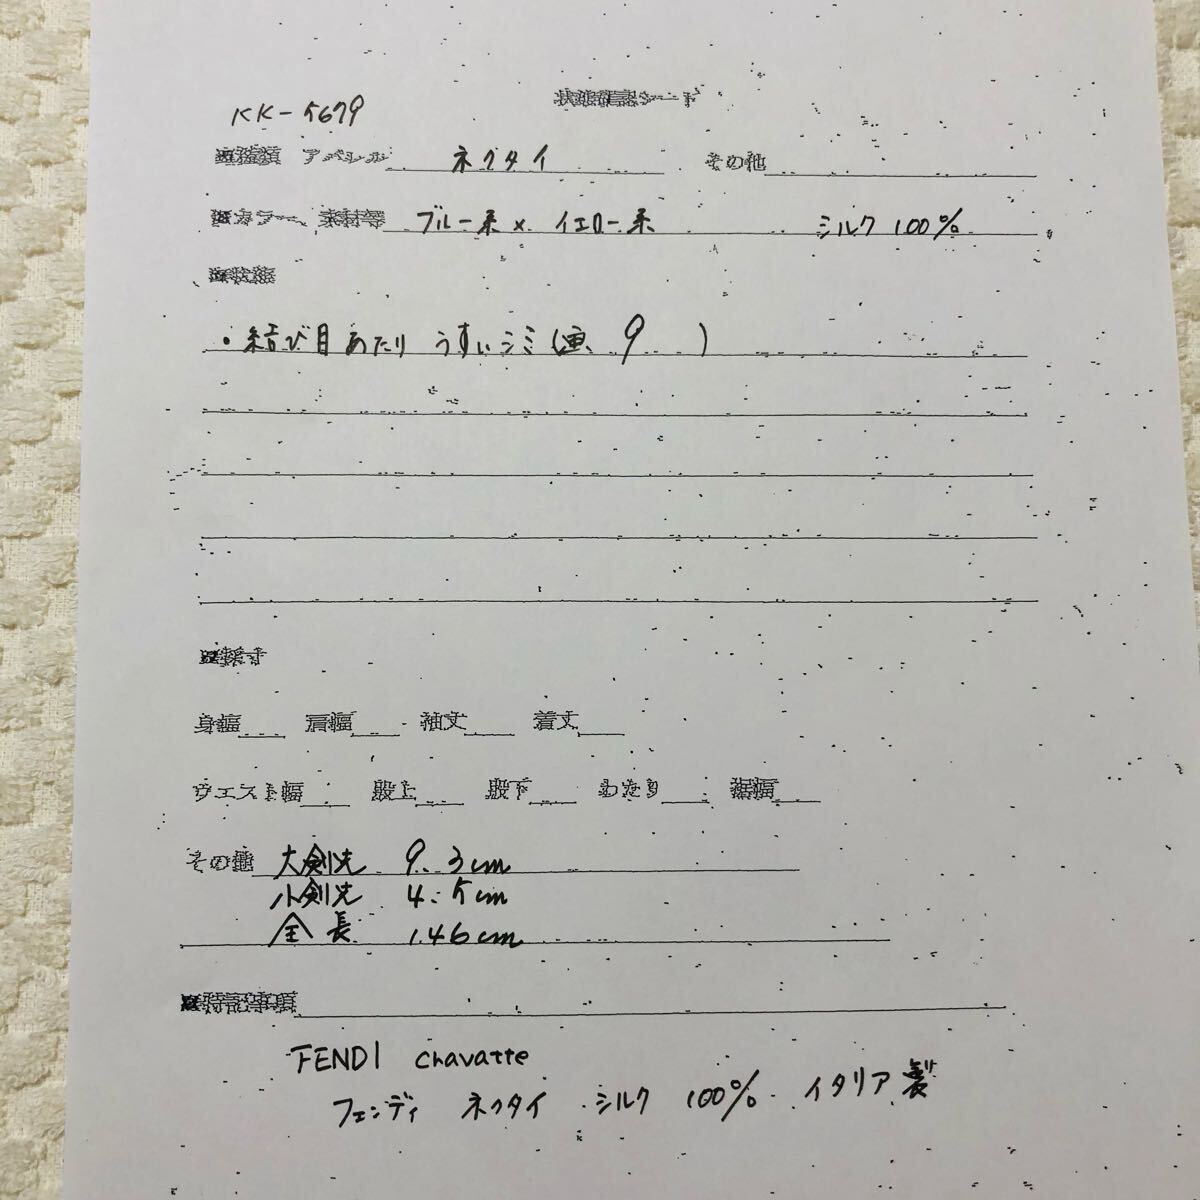 状態確認シート
KK-5679
※種類 アパレル ネクタイ その他
※カラー、素材等 ブルー系 × イエロー系 シルク 100%
※状態
・結び目あたり うすいシミ(画、9 )
※採寸
身幅 肩幅 袖丈 着丈
ウエスト幅 股上 股下 わたり 裾幅
その他 大剣先 9.3cm
小剣先 4.5cm
全長 146cm
※特記事項
FENDI chavatte
フェンディ ネクタイ シルク 100% イタリア製